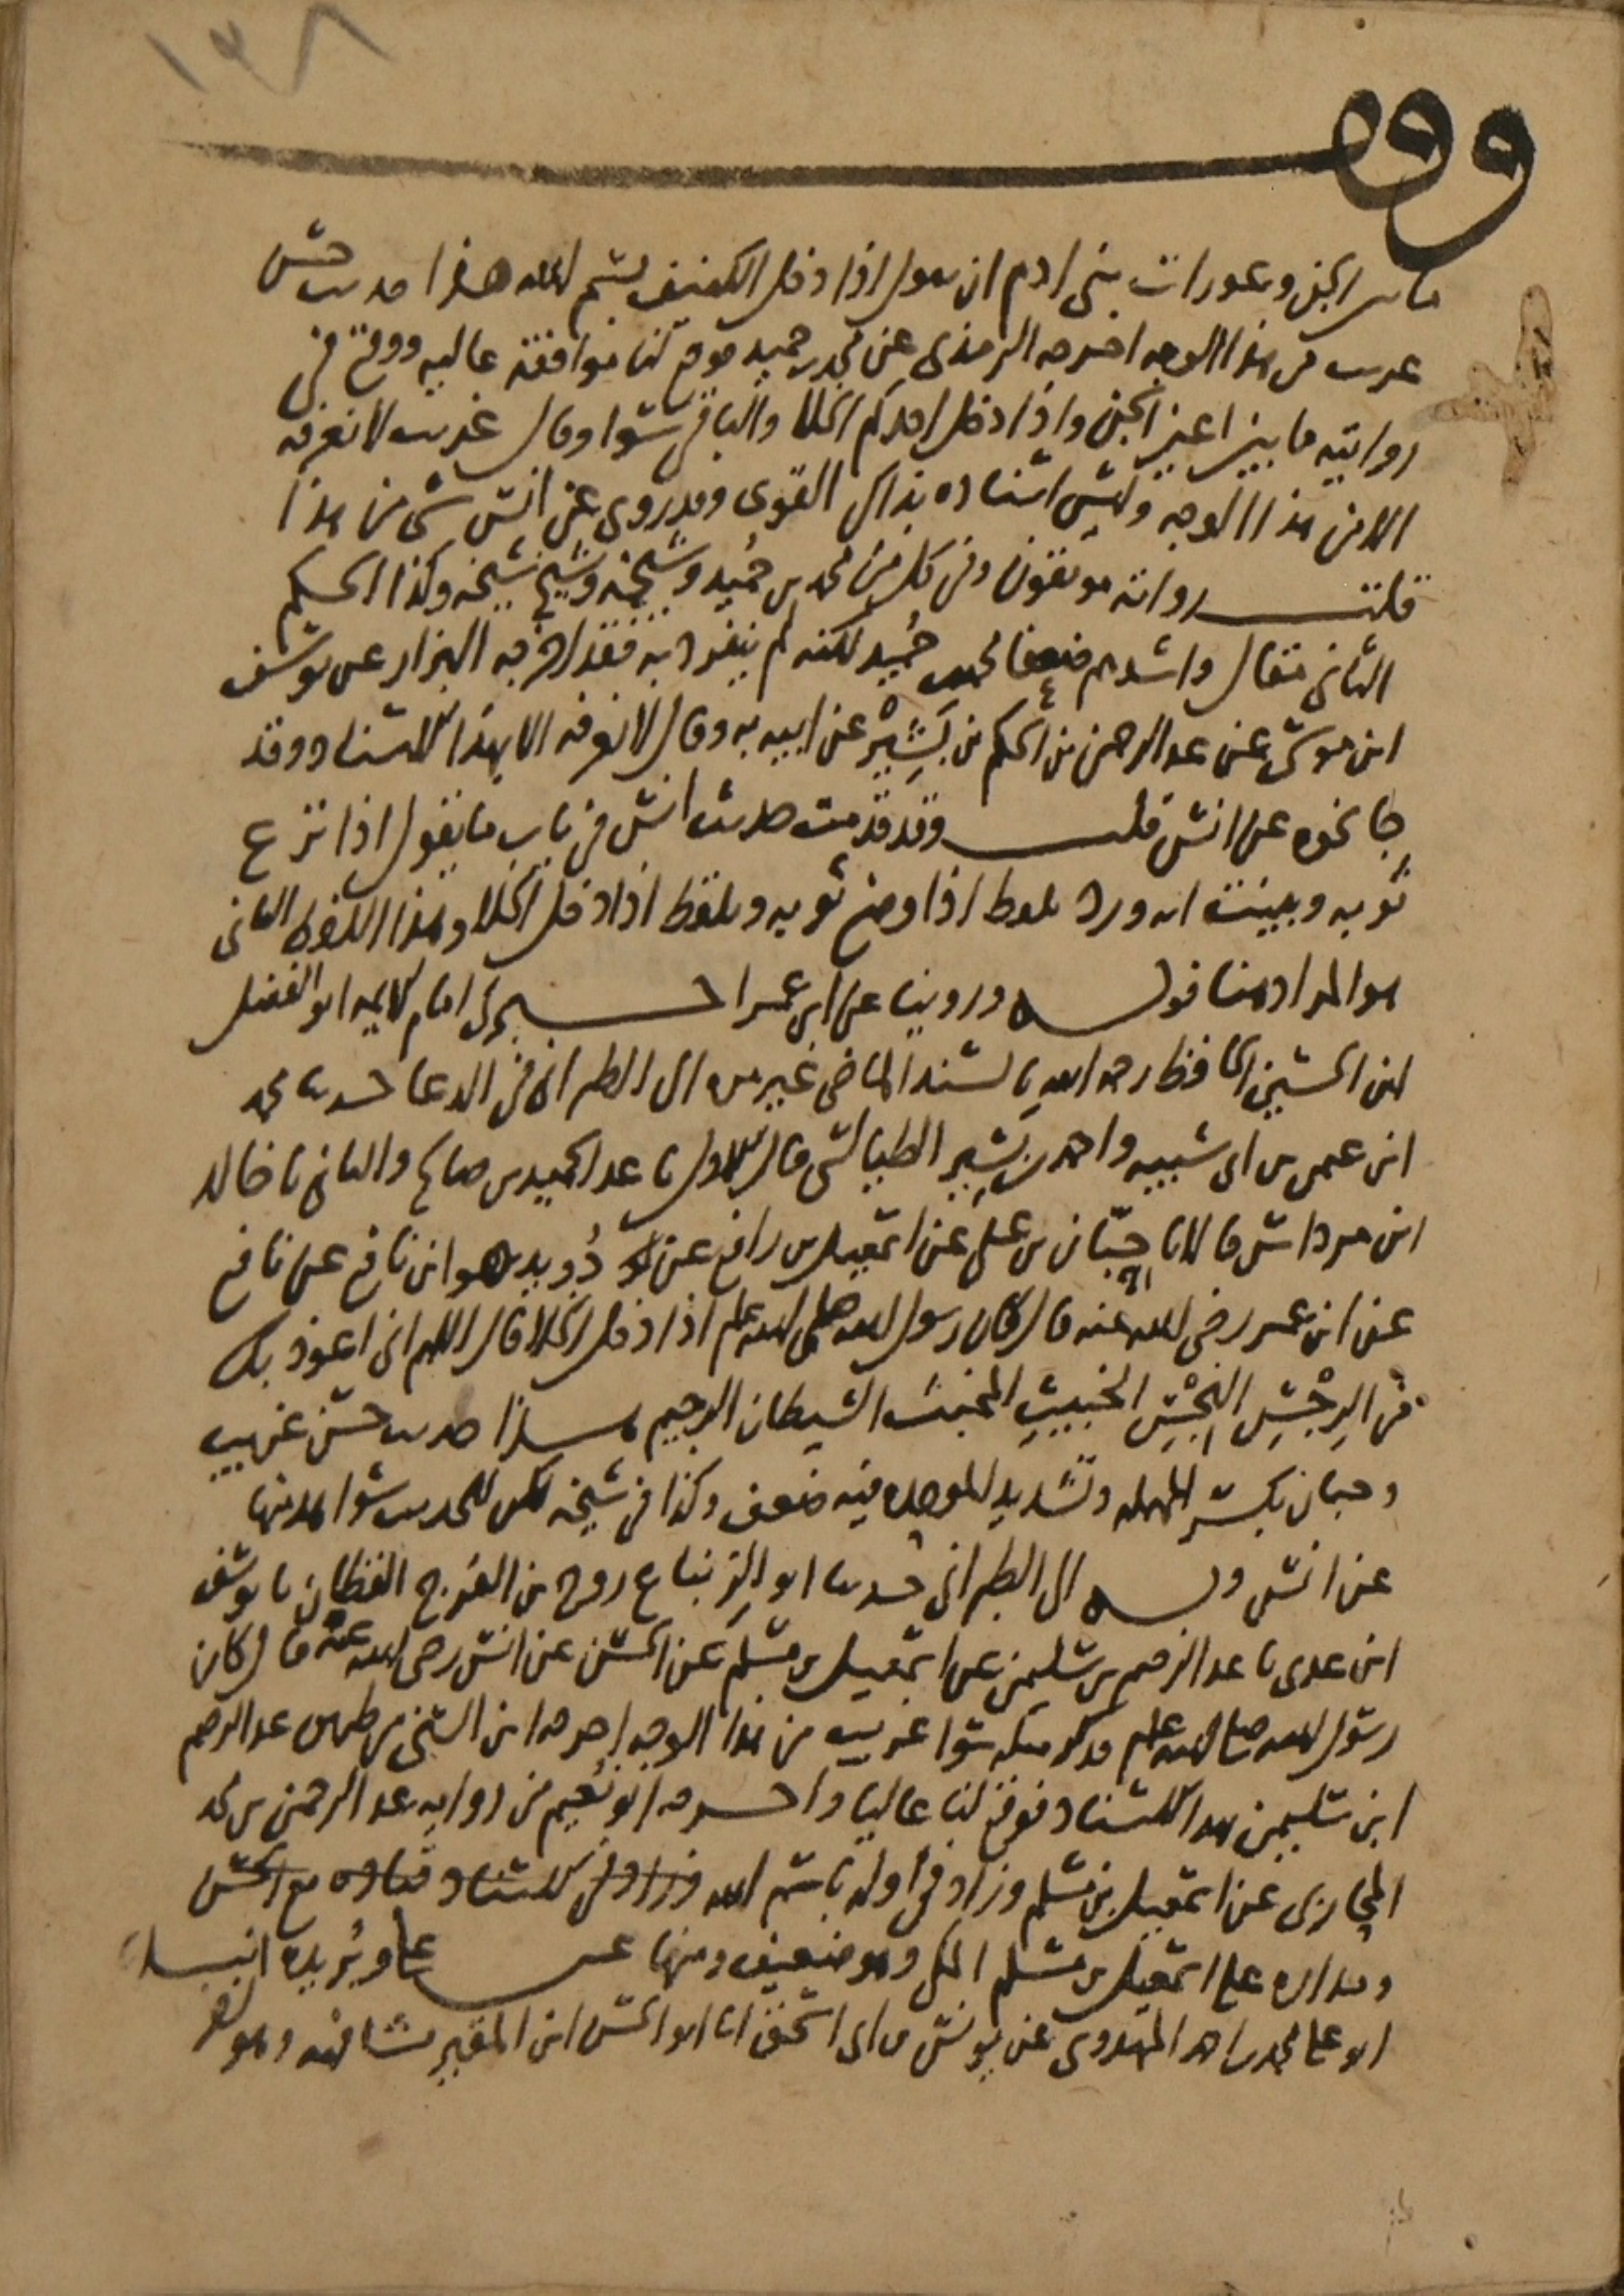 ١٣٨
وقف
ما بين الجن وعورات بني ادم ان يقول اذا دخل الكنيف بسم الله هذا حديث حسن
غريب من هذا الوجه اخرجه الترمذي عن محمد بن حميد فوقع لنا موافقة عالية ووقع في
روايتيه ما بين اعين الجن واذا دخل احدكم الخلا والباقي سوا وقال غريب لا نعرفه
الا من هذا الوجه وليس اسناده بذاك القوي وقد روي عن انس شي من هذا
قلت رواته موثقون وفي كل من محمد بن حميد وشيخه وشيخ شيخه وكذا الحكم
الثاني مقال واشدهم ضعفا محمد بن حميد لكنه لم ينفرد به فقد اخرجه البزار عن يوسف
ابن موسى عن عبد الرحمن بن الحكم بن بشير عن ابيه به وقال لا نعرفه الا بهذا الاسناد وقد
جا نحوه عن انس قلت وقد قدمت حديث انس في باب ما يقول اذا نزع
ثوبه وبينت انه ورد بلفظ اذا وضع ثوبه وبلفظ اذا دخل الخلا وهذا اللفظ الثاني
هو المراد هنا قوله وروينا عن ابن عمر اخبرني امام الايمه ابو الفضل
ابن الحسين الحافظ رحمه الله بالسند الماضي غير مره الى الطبراني في الدعا حدثنا محمد
ابن عثمن بن ابي شيبه واحمد بن بشير الطيالسي قال الاول نا عبد الحميد بن صالح والثاني نا خالد
ابن مرداس قالا نا حبان بن علي عن اسمعيل بن رافع عن دويد هو ابن نافع عن نافع
عن ابن عمر رضي الله عنه قال كان رسول الله صلى الله عليه وسلم اذا دخل الخلا قال اللهم اني اعوذ بك
من الرجس النجس الخبيث المخبث الشيطان الرجيم هذا حديث حسن غريب
وحبان بكسر المهمله وتشديد الموحده فيه ضعف وكذا في شيخه لكن للحديث شواهد منها
عن انس وبه الى الطبراني حدثنا ابو الزنباع روح بن الفرج القطان نا يوسف
ابن عدي نا عبد الرحيم بن سليمن عن اسمعيل بن مسلم عن الحسن عن انس رضي الله عنه قال كان
رسول الله صلى الله عليه وسلم فذكر مثله سوا غريب من هذا الوجه اخرجه ابن السني من طريق عبد الرحيم
ابن سليمن بهذا الاسناد فوقع لنا عاليا واخرجه ابو نعيم من روايه عبد الرحمن بن محمد
المحاربي عن اسمعيل بن مسلم وزاد في اوله باسم الله وزاد في الاسناد قتاده مع الحسن
ومداره على اسمعيل بن مسلم المكي وهو ضعيف ومنها عن علي وبريده انبا
ابو علي محمد بن احمد المهدوي عن يونس بن ابي اسحق انا ابو الحسن ابن المقير مشافهه وهو